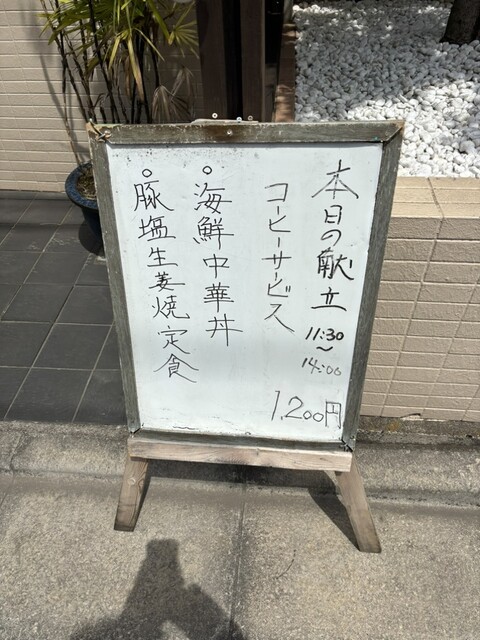 本日の献立
11:30
〜
14:00
コーヒーサービス
1,200円
○海鮮中華丼
○豚塩生姜焼定食